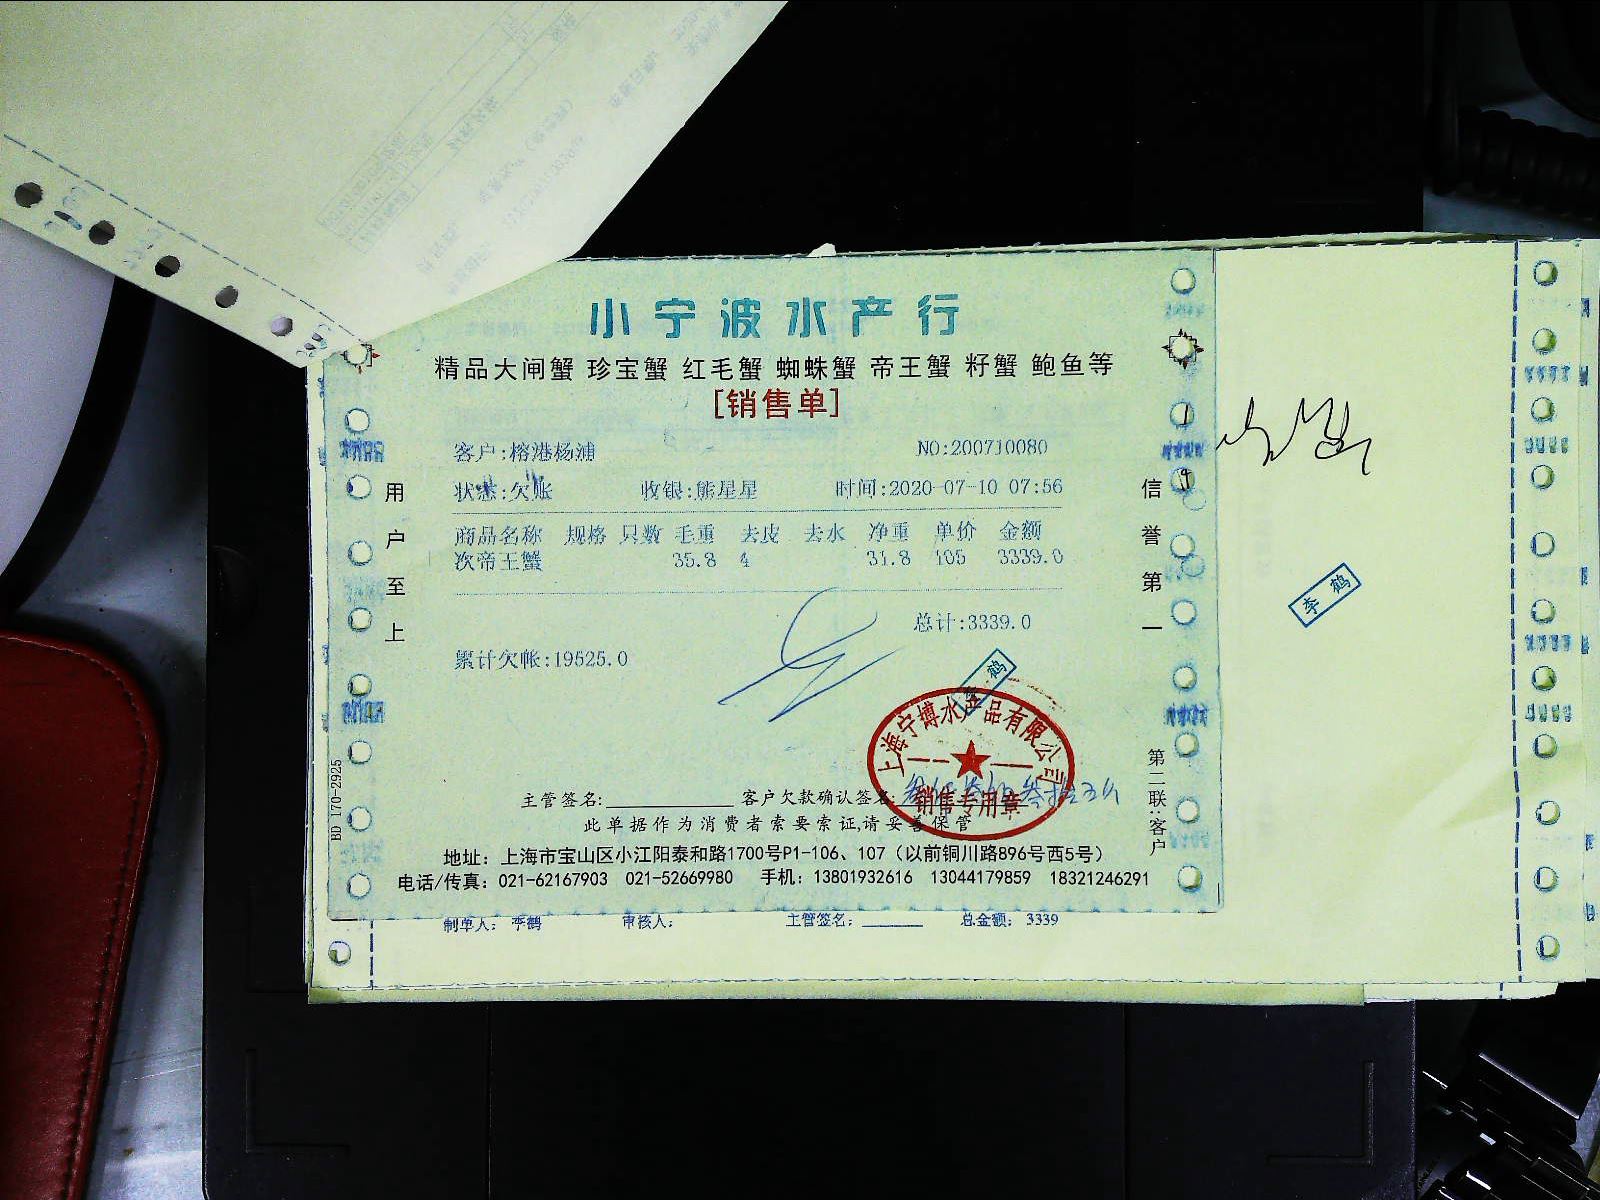 小宁波水产行
精品大闸蟹 珍宝蟹 红毛蟹 蜘蛛蟹 帝王蟹 籽蟹 鲍鱼等
[销售单]
客户:榕港杨浦 NO:200710080
状态:欠账 收银:熊星星 时间:2020-07-10 07:56
商品名称 规格 只数 毛重 去皮 去水 净重 单价 金额
次帝王蟹 35.8 4 31.8 105 3339.0
总计:3339.0
累计欠帐:19525.0
用户至上
信誉第一
李鹤
李鹤
上海宁博水产品有限公司
销售专用章
主管签名: 客户欠款确认签名:
此单据作为消费者索要索证,请妥善保管
地址：上海市宝山区小江阳泰和路1700号P1-106、107（以前铜川路896号西5号）
电话/传真：021-62167903 021-52669980 手机：13801932616 13044179859 18321246291
第二联:客户
BD 170-2925
制单人：李鹤 审核人： 主管签名： 总金额：3339